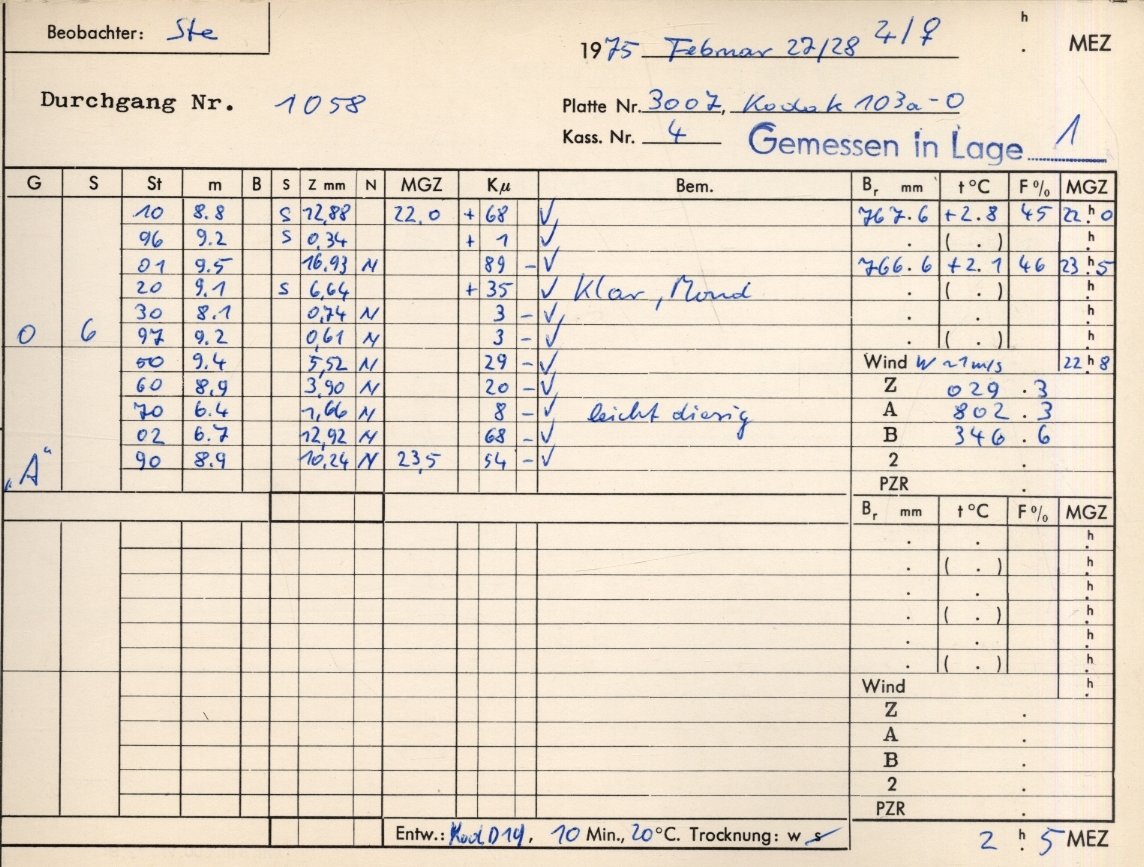 Beobachter: Ste
1975 Februar 27/28 ♃/♀ h . MEZ
Durchgang Nr. 1058
Platte Nr. 3007, Kodak 103a-O
Kass. Nr. 4 Gemessen in Lage 1
G S St m B S Z mm N MGZ Kμ Bem. Br mm t °C F % MGZ
10 8.8 S 12,88 22,0 + 68 √ 767.6 +2.8 45 22h.0
96 9.2 S 0,34 + 1 √ . ( . ) h.
01 9.5 16,93 N 89 - √ 766.6 +2.1 46 23h.5
20 9.1 S 6,64 + 35 √ Klar, Mond . ( . ) h.
30 8.1 0,74 N 3 - √ . . h.
0 6 97 9.2 0,61 N 3 - √ . ( . ) h.
50 9.4 5,52 N 29 - √ Wind W ~1m/s 22h.8
60 8.9 3,90 N 20 - √ Z 029.3
70 6.4 1,66 N 8 - √ leicht diesig A 802.3
02 6.7 12,92 N 68 - √ B 346.6
„A“ 90 8.9 10,24 N 23,5 54 - √ 2 .
PZR .
Br mm t °C F % MGZ
. . h.
. ( . ) h.
. . h.
. ( . ) h.
. . h.
. ( . ) h.
Wind h.
Z .
A .
B .
2 .
PZR .
Entw.: Kod D19, 10 Min., 20°C. Trocknung: w s
2 h. 5 MEZ